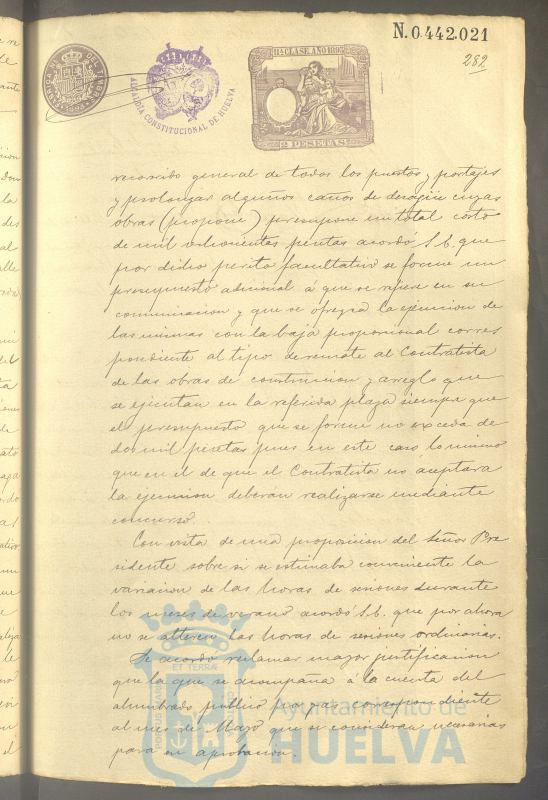 N. 0.442.021
282
11ª CLASE. AÑO 1895
2 PESETAS
ALCALDÍA CONSTITUCIONAL DE HUELVA
recorrido general de todos los puestos y portajes
y prolongar algunos caños de desagüe cuyas
obras (propone) presupone un total costo
de mil ochocientas pesetas acordó S.E. que
por dicho perito facultativo se forme un
presupuesto adicional á que se refiere en su
comunicacion y que se ofrezca la ejecucion de
las mismas con la baja proporcional corres
pondiente al tipo de remate al Contratista
de las obras de continuacion y arreglo que
se ejecutan en la referida plaza siempre que
el presupuesto que se forme no exceda de
dos mil pesetas pues en este caso lo mismo
que en el de que el Contratista no aceptara
la ejecucion deberan realizarse mediante
concurso.
Con vista de una proposicion del Señor Pre
sidente sobre si se estimaba conveniente la
variacion de las horas de sesiones durante
los meses de verano acordó S.E. que por ahora
no se alteren las horas de sesiones ordinarias.
Se acordó reclamar mayor justificacion
que la que se acompaña á la cuenta del
alumbrado público por gas correspondiente
al mes de Mayo que se consideran necesarias
para su aprobacion.
PORTUS MARIS ET TERRAE CUSTODIA
Ayuntamiento de
HUELVA